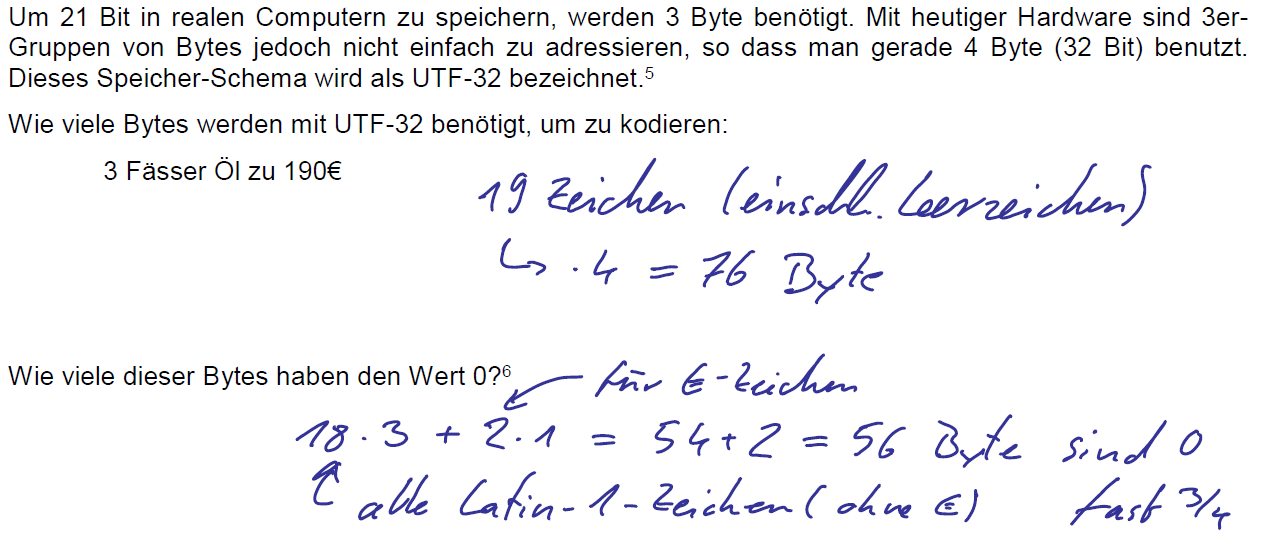 Um 21 Bit in realen Computern zu speichern, werden 3 Byte benötigt. Mit heutiger Hardware sind 3er-
Gruppen von Bytes jedoch nicht einfach zu adressieren, so dass man gerade 4 Byte (32 Bit) benutzt.
Dieses Speicher-Schema wird als UTF-32 bezeichnet.⁵
Wie viele Bytes werden mit UTF-32 benötigt, um zu kodieren:
3 Fässer Öl zu 190€
19 Zeichen (einschl. Leerzeichen)
↳ · 4 = 76 Byte
Wie viele dieser Bytes haben den Wert 0?⁶
für €-Zeichen
18 · 3 + 2 · 1 = 54 + 2 = 56 Byte sind 0
↑ alle Latin-1-Zeichen (ohne €) fast 3/4